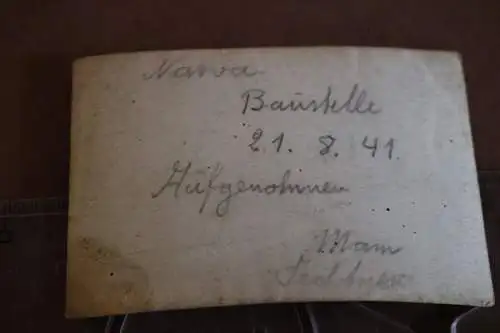 Narva
Baustelle
21. 8. 41.
Aufgenohmen